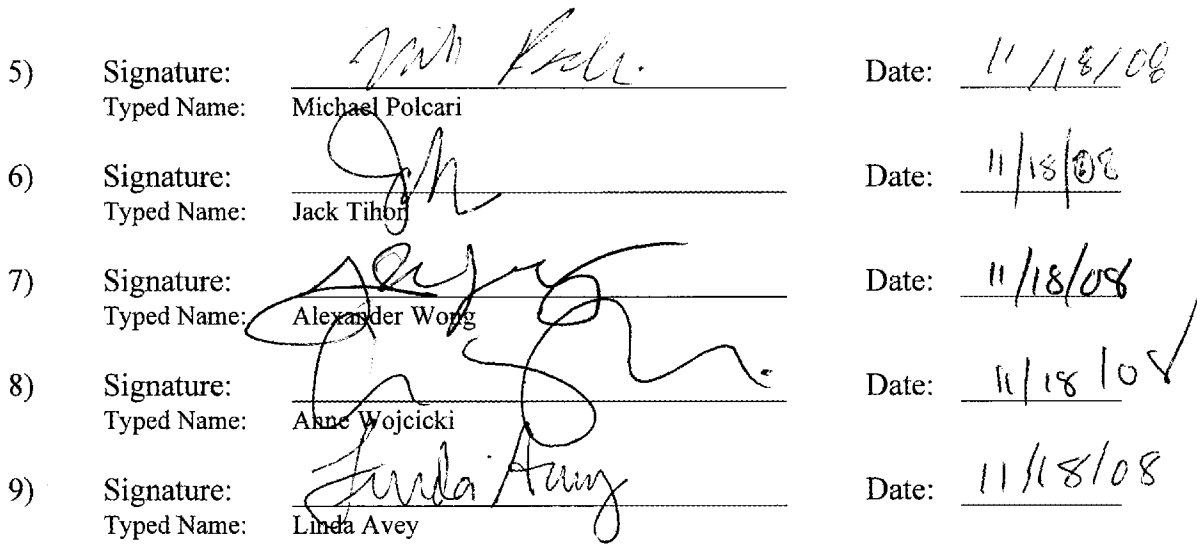 5) Signature: Date: 11/18/08
Typed Name: Michael Polcari
6) Signature: Date: 11/18/08
Typed Name: Jack Tihon
7) Signature: Date: 11/18/08
Typed Name: Alexander Wong
8) Signature: Date: 11/18/08
Typed Name: Anne Wojcicki
9) Signature: Linda Avey Date: 11/18/08
Typed Name: Linda Avey